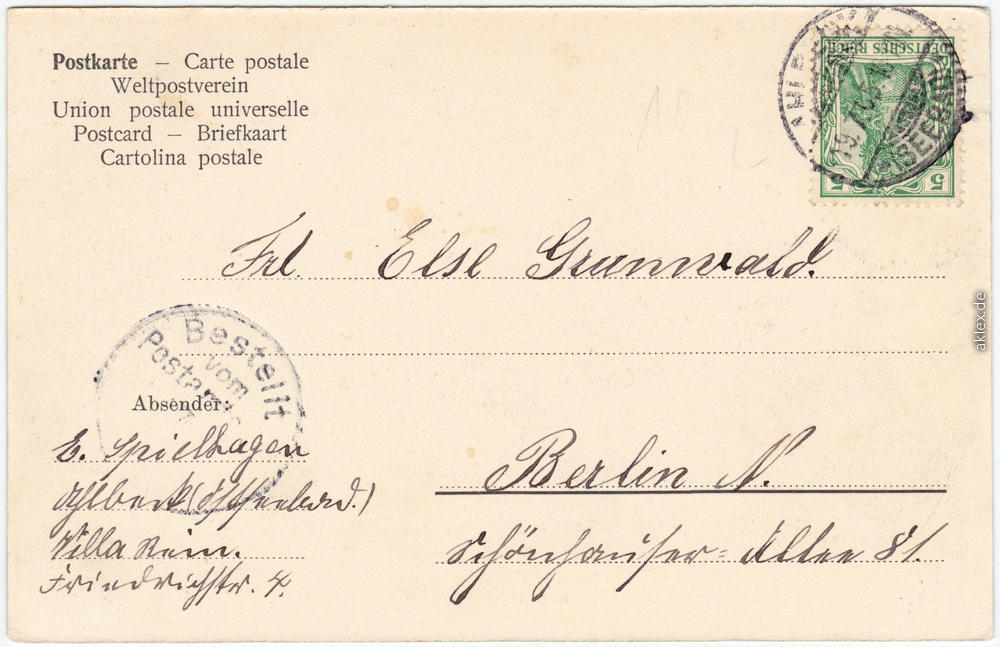 Postkarte – Carte postale
Weltpostverein
Union postale universelle
Postcard – Briefkaart
Cartolina postale
DEUTSCHES REICH
5 5
SEEBAD
Frl. Else Grunwald.
Bestellt
vom
Postamte
Absender:
E. Spielhagen
Ahlbeck (Ostseebad.)
Villa Rein.
Friedrichstr. 4.
Berlin N.
Schönhauser-Allee 81.
aklex.de